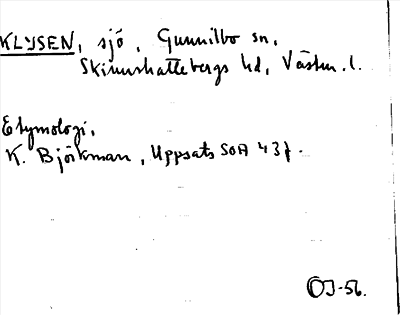 KLYSEN, sjö, Gunnilbo sn,
Skinnskattebergs hd, Västm. l.
Etymologi,
K. Björkman, Uppsats SOA 437.
OJ-56.